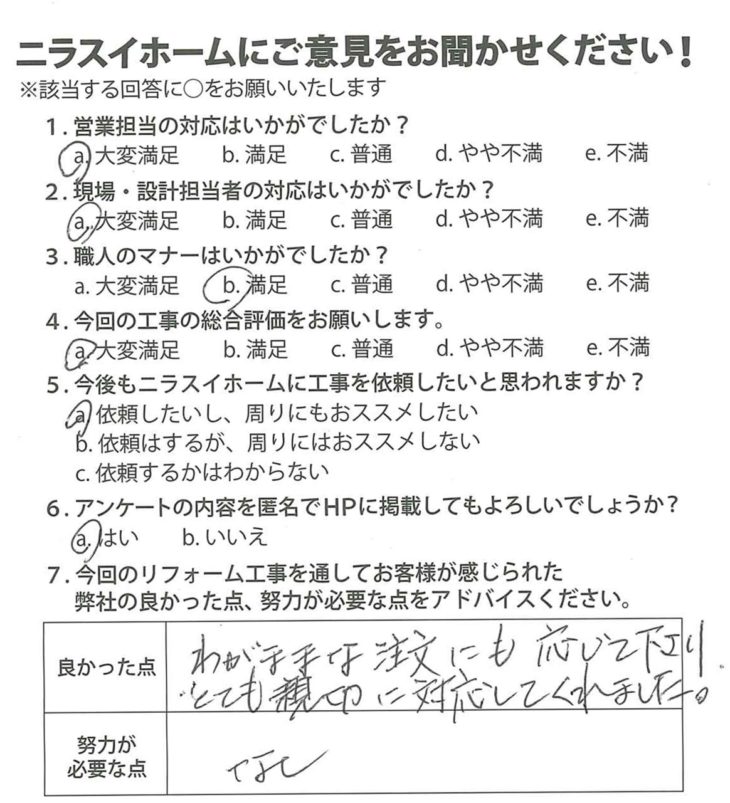 ニラスイホームにご意見をお聞かせください！
※該当する回答に○をお願いいたします
1. 営業担当の対応はいかがでしたか？
a. 大変満足 b. 満足 c. 普通 d. やや不満 e. 不満
2. 現場・設計担当者の対応はいかがでしたか？
a. 大変満足 b. 満足 c. 普通 d. やや不満 e. 不満
3. 職人のマナーはいかがでしたか？
a. 大変満足 b. 満足 c. 普通 d. やや不満 e. 不満
4. 今回の工事の総合評価をお願いします。
a. 大変満足 b. 満足 c. 普通 d. やや不満 e. 不満
5. 今後もニラスイホームに工事を依頼したいと思われますか？
a. 依頼したいし、周りにもおススメしたい
b. 依頼はするが、周りにはおススメしない
c. 依頼するかはわからない
6. アンケートの内容を匿名でHPに掲載してもよろしいでしょうか？
a. はい b. いいえ
7. 今回のリフォーム工事を通してお客様が感じられた
弊社の良かった点、努力が必要な点をアドバイスください。
良かった点
わがままな注文にも応じて下さり
とても親切に対応してくれました。
努力が
必要な点
なし